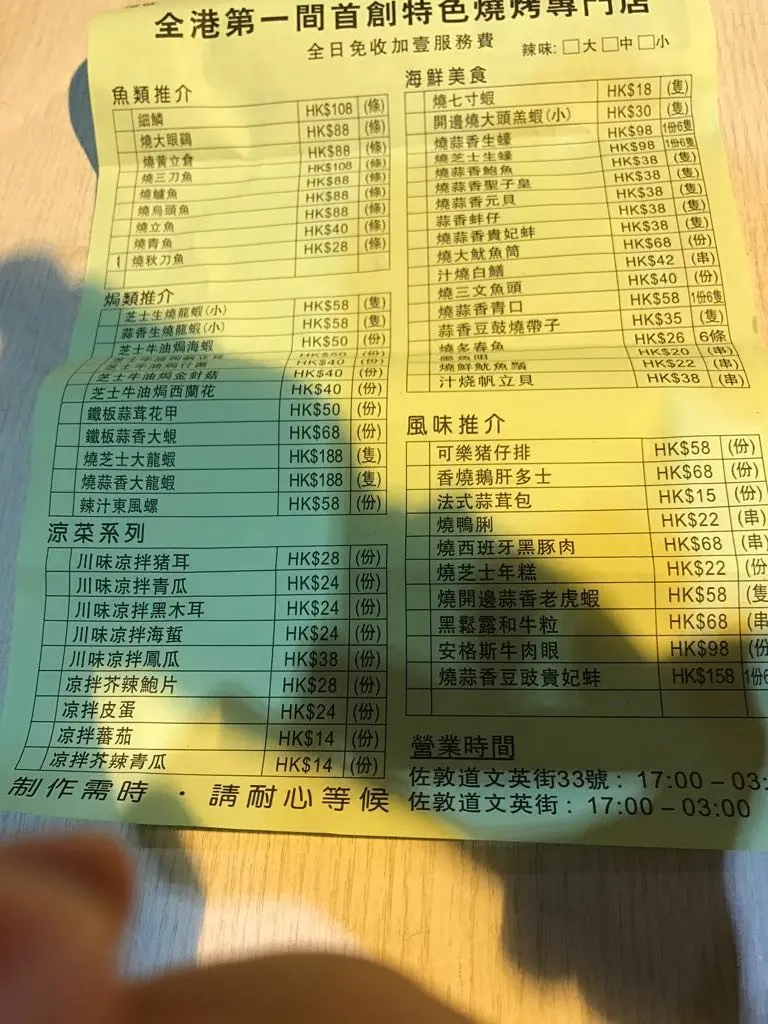 全港第一間首創特色燒烤專門店
全日免收加壹服務費 辣味: □大 □中 □小
魚類推介
細鱗 HK$108 (條)
燒大眼鷄 HK$88 (條)
燒黃立倉 HK$88 (條)
燒三刀魚 HK$108 (條)
燒鱸魚 HK$88 (條)
燒烏頭魚 HK$88 (條)
燒立魚 HK$88 (條)
燒青魚 HK$40 (條)
燒秋刀魚 HK$28 (條)
焗類推介
芝士生燒龍蝦(小) HK$58 (隻)
蒜香生燒龍蝦(小) HK$58 (隻)
芝士牛油焗海蝦 HK$50 (份)
HK$50 (份)
芝士牛油焗什菌 HK$40 (份)
芝士牛油焗金針菇 HK$40 (份)
芝士牛油焗西蘭花 HK$40 (份)
鐵板蒜茸花甲 HK$50 (份)
鐵板蒜香大蜆 HK$68 (份)
燒芝士大龍蝦 HK$188 (隻)
燒蒜香大龍蝦 HK$188 (隻)
辣汁東風螺 HK$58 (份)
涼菜系列
川味凉拌猪耳 HK$28 (份)
川味凉拌青瓜 HK$24 (份)
川味凉拌黑木耳 HK$24 (份)
川味凉拌海蜇 HK$24 (份)
川味凉拌鳳瓜 HK$38 (份)
凉拌芥辣鮑片 HK$28 (份)
凉拌皮蛋 HK$24 (份)
凉拌蕃茄 HK$14 (份)
凉拌芥辣青瓜 HK$14 (份)
制作需時・請耐心等候
海鮮美食
燒七寸蝦 HK$18 (隻)
開邊燒大頭羔蝦(小) HK$30 (隻)
燒蒜香生蠔 HK$98 1份6隻
燒芝士生蠔 HK$98 1份6隻
燒蒜香鮑魚 HK$38 (隻)
燒蒜香聖子皇 HK$38 (隻)
燒蒜香元貝 HK$38 (隻)
蒜香蚌仔 HK$38 (隻)
燒蒜香貴妃蚌 HK$38 (隻)
燒大魷魚筒 HK$68 (份)
汁燒白鱔 HK$42 (串)
燒三文魚頭 HK$40 (份)
燒蒜香青口 HK$58 1份6隻
蒜香豆鼓燒帶子 HK$35 (隻)
燒多春魚 HK$26 6條
墨魚咀 HK$20 (串)
燒鮮魷魚鬚 HK$22 (串)
汁燒帆立貝 HK$38 (串)
風味推介
可樂猪仔排 HK$58 (份)
香燒鵝肝多士 HK$68 (份)
法式蒜茸包 HK$15 (份)
燒鴨脷 HK$22 (串)
燒西班牙黑豚肉 HK$68 (串)
燒芝士年糕 HK$22 (份
燒開邊蒜香老虎蝦 HK$58 (隻
黑鬆露和牛粒 HK$68 (串
安格斯牛肉眼 HK$98 (份
燒蒜香豆豉貴妃蚌 HK$158 1份6
營業時間
佐敦道文英街33號 : 17:00 – 03:
佐敦道文英街 : 17:00 – 03:00